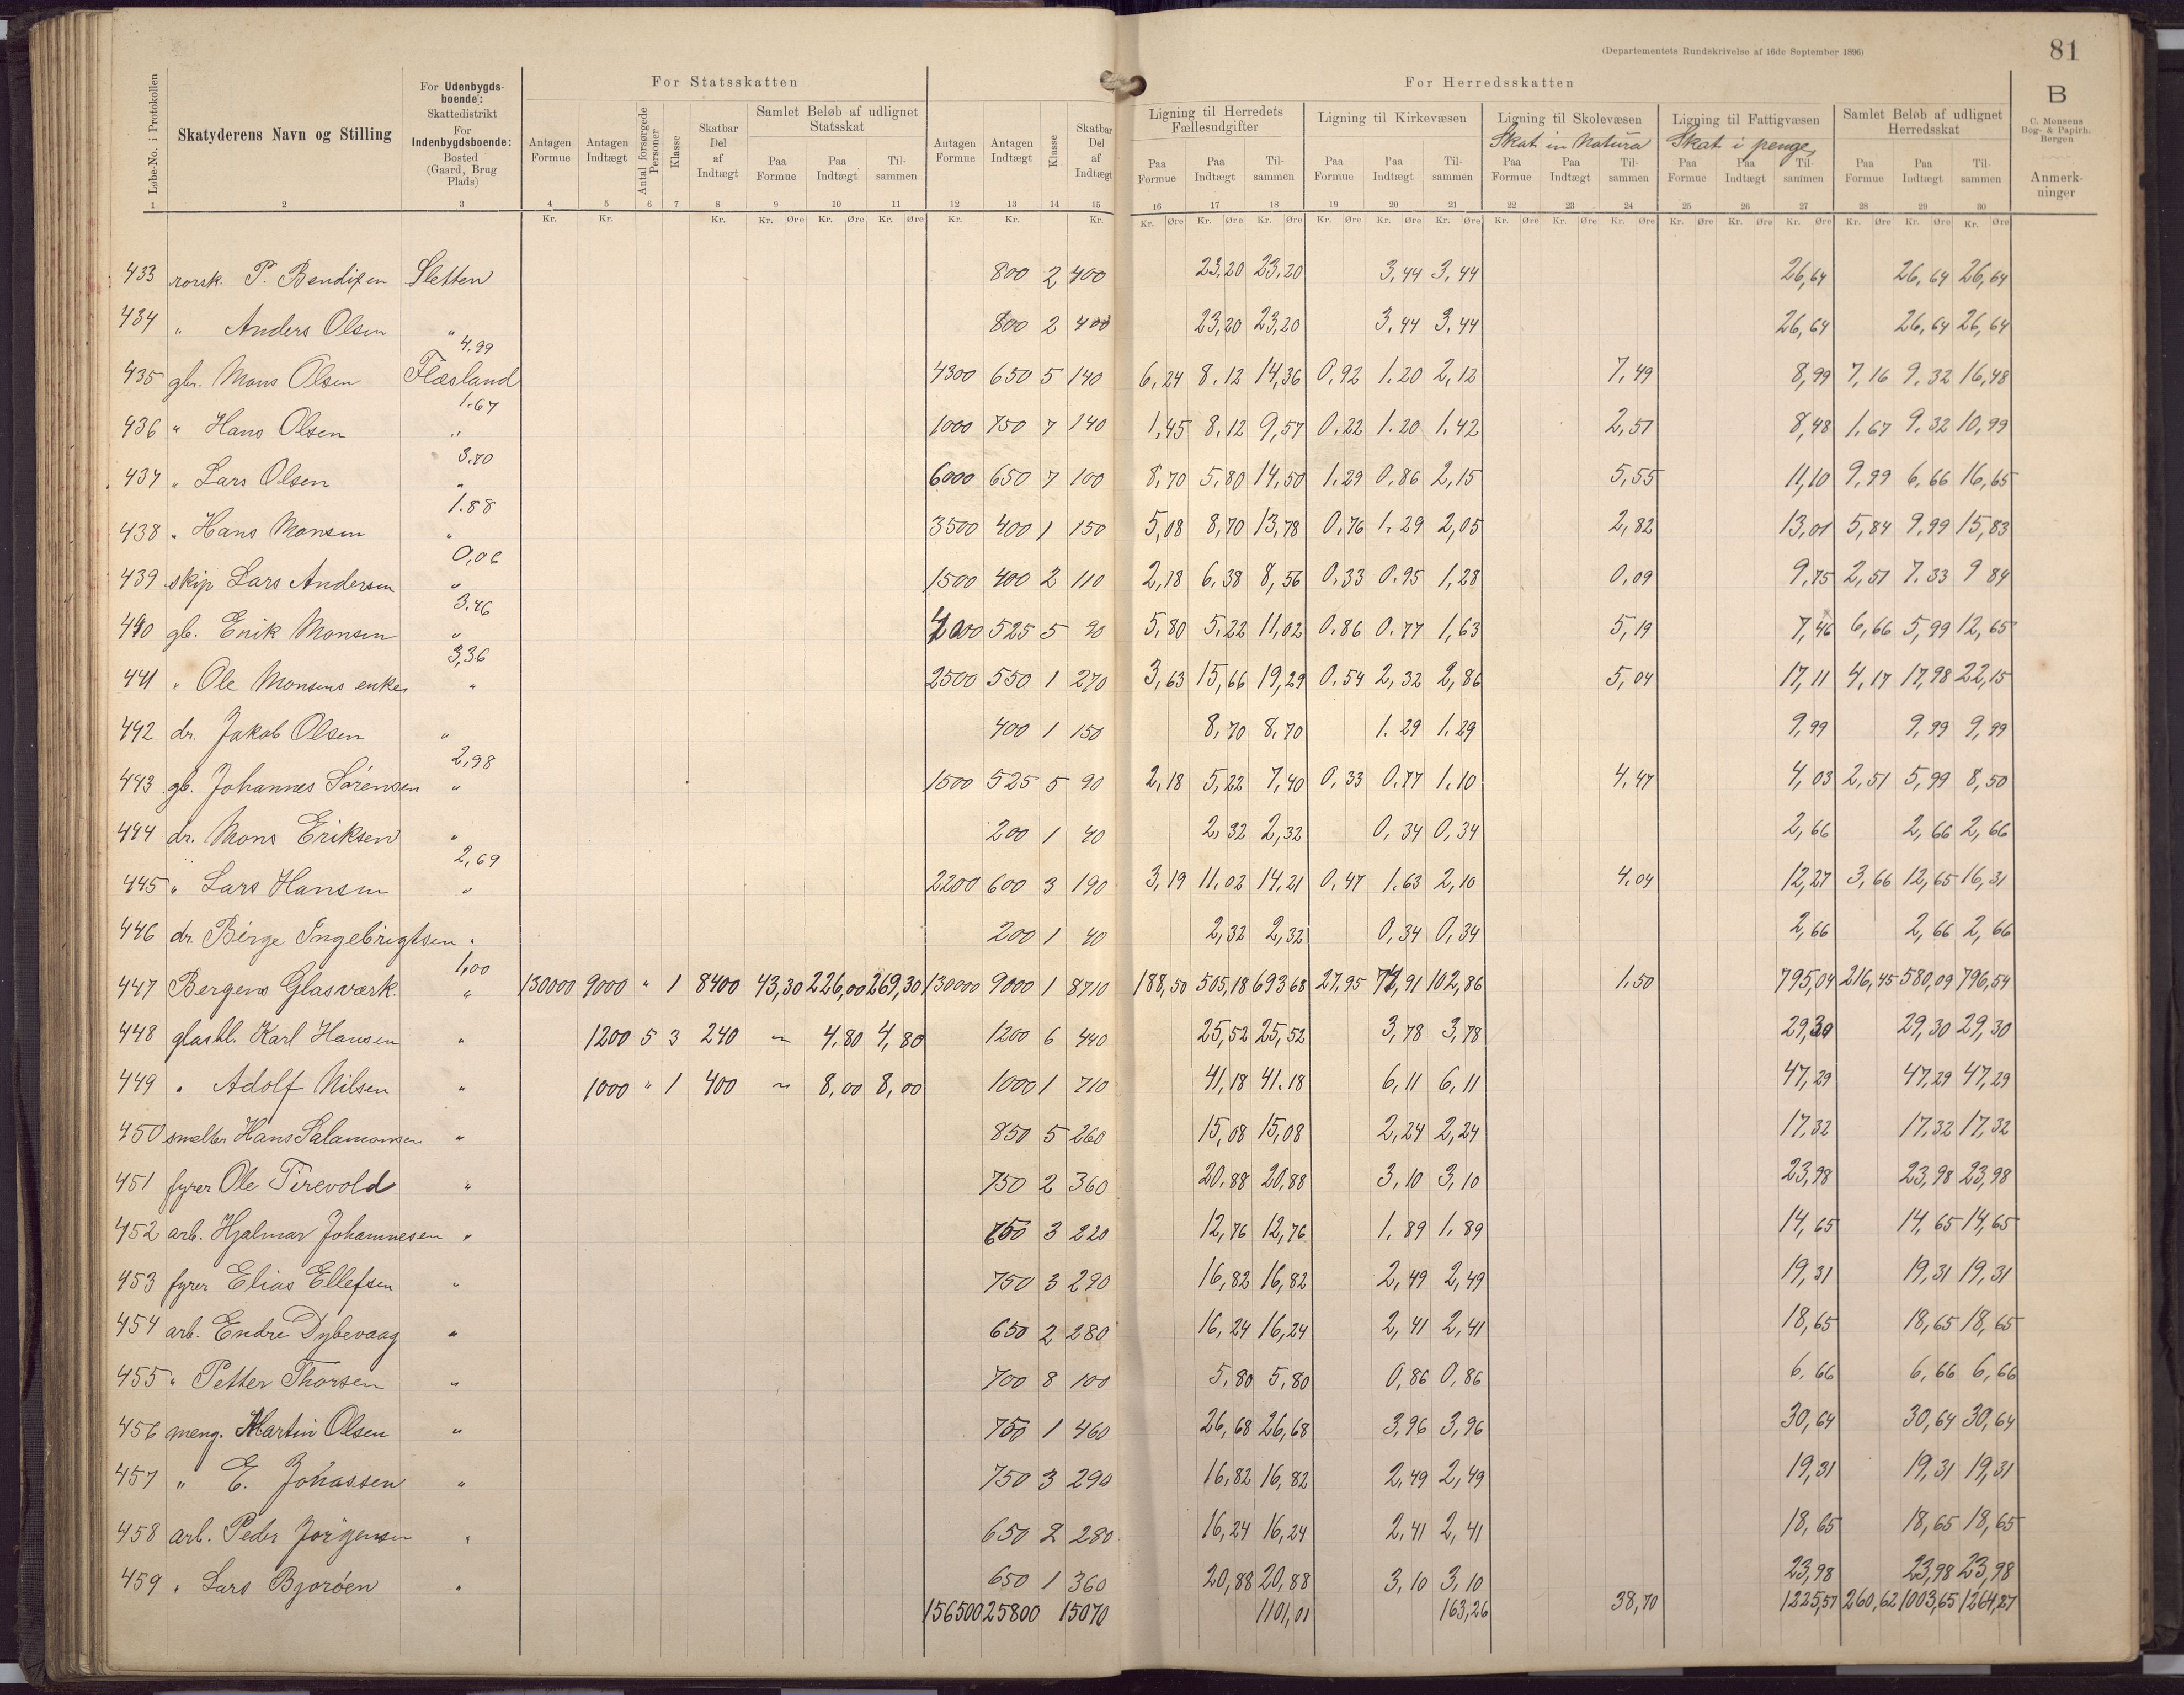 (Departementets Rundskrivelse af 16de September 1896)
81
B
C. Monsens Bog- & Papirh. Bergen
For Statsskatten
For Herredsskatten
Løbe-No. i Protokollen
Skatyderens Navn og Stilling
For Udenbygdsboende: Skattedistrikt For Indenbygdsboende: Bosted (Gaard, Brug Plads)
Antagen Formue
Antagen Indtægt
Antal forsørgede Personer
Klasse
Skatbar Del af Indtægt
Samlet Beløb af udlignet Statsskat
Paa Formue Paa Indtægt Tilsammen
Antagen Formue
Antagen Indtægt
Klasse
Skatbar Del af Indtægt
Ligning til Herredets Fællesudgifter
Paa Formue Paa Indtægt Tilsammen
Ligning til Kirkevæsen
Paa Formue Paa Indtægt Tilsammen
Ligning til Skolevæsen
Skat in Natura
Paa Formue Paa Indtægt Tilsammen
Ligning til Fattigvæsen
Skat i penge
Paa Formue Paa Indtægt Tilsammen
Samlet Beløb af udlignet Herredsskat
Paa Formue Paa Indtægt Tilsammen
Anmerkninger
1 2 3 4 5 6 7 8 9 10 11 12 13 14 15 16 17 18 19 20 21 22 23 24 25 26 27 28 29 30
Kr. Kr. Kr. Kr. Øre Kr. Øre Kr. Øre Kr. Kr. Kr. Kr. Øre Kr. Øre Kr. Øre Kr. Øre Kr. Øre Kr. Øre Kr. Øre Kr. Øre Kr. Øre Kr. Øre Kr. Øre Kr. Øre Kr. Øre Kr. Øre Kr. Øre
433 rorsk. P. Bendixen Sletten 800 2 400 23,20 23,20 3,44 3,44 26,64 26,64 26,64
434 " Anders Olsen " 800 2 400 23,20 23,20 3,44 3,44 26,64 26,64 26,64
4,99
435 gbr. Mons Olsen Flæsland 4300 650 5 140 6,24 8,12 14,36 0,92 1.20 2,12 7,49 8,99 7,16 9,32 16,48
1.67
436 " Hans Olsen " 1000 750 7 140 1,45 8,12 9,57 0,22 1.20 1.42 2,51 8,48 1,67 9,32 10,99
3.70
437 " Lars Olsen " 6000 650 7 100 8,70 5,80 14,50 1,29 0,86 2,15 5,55 11,10 9,99 6,66 16,65
1.88
438 " Hans Monsen " 3500 400 1 150 5,08 8,70 13,78 0,76 1.29 2,05 2,82 13,01 5,84 9,99 15,83
0,06
439 skip Lars Andersen " 1500 400 2 110 2,18 6,38 8,56 0,33 0,95 1,28 0,09 9,75 2,51 7.33 9 84
3.46
440 gb. Erik Monsen " 4000 525 5 90 5,80 5,22 11,02 0,86 0,77 1,63 5,19 7,46 6,66 5,99 12,65
3,36
441 " Ole Monsens enke " 2500 550 1 270 3,63 15,66 19,29 0.54 2,32 2,86 5,04 17,11 4,17 17,98 22,15
442 dr. Jakob Olsen " 400 1 150 8,70 8,70 1.29 1.29 9,99 9,99 9,99
2,98
443 gb. Johannes Sørensen " 1500 525 5 90 2,18 5,22 7,40 0,33 0,77 1.10 4,47 4,03 2,51 5,99 8,50
444 dr. Mons Eriksen " 200 1 40 2,32 2,32 0,34 0,34 2,66 2,66 2,66
2,69
445 " Lars Hansen " 2200 600 3 190 3,19 11,02 14,21 0,47 1,63 2,10 4,04 12,27 3,66 12,65 16,31
446 dr. Birge Ingebrigtsen " 200 1 40 2,32 2,32 0,34 0,34 2,66 2,66 2,66
1,00
447 Bergens Glasværk. " 130000 9000 " 1 8400 43,30 226,00 269,30 130000 9000 1 8710 188,50 505,18 693 68 27,95 74,91 102,86 1.50 795,04 216,45 580,09 796,54
448 glasbl. Karl Hansen " 1200 5 3 240 " 4,80 4,80 1200 6 440 25,52 25,52 3,78 3,78 29,30 29,30 29,30
449 " Adolf Nilsen " 1000 " 1 400 " 8,00 8,00 1000 1 710 41,18 41.18 6,11 6,11 47,29 47,29 47,29
450 smelter Hans Salamonsen " 850 5 260 15,08 15,08 2,24 2,24 17,32 17,32 17,32
451 fyrer Ole Tirevold " 750 2 360 20,88 20,88 3,10 3,10 23,98 23,98 23,98
452 arb. Hjalmar Johannesen " 650 3 220 12,76 12,76 1,89 1,89 14,65 14,65 14,65
453 fyrer Elias Ellefsen " 750 3 290 16,82 16,82 2,49 2,49 19,31 19,31 19,31
454 arb. Endre Dybevaag " 650 2 280 16,24 16,24 2,41 2,41 18,65 18,65 18,65
455 " Petter Thorsen " 700 8 100 5,80 5,80 0,86 0,86 6,66 6,66 6,66
456 meng. Martin Olsen " 750 1 460 26,68 26,68 3,96 3,96 30,64 30,64 30,64
457 " E. Johassen " 750 3 290 16,82 16,82 2,49 2,49 19,31 19,31 19,31
458 arb. Peder Jørgensen " 650 2 280 16,24 16,24 2,41 2,41 18,65 18,65 18,65
459 " Lars Bjorøen " 650 1 360 20,88 20,88 3,10 3,10 23,98 23,98 23,98
156500 25800 15070 1101,01 163,26 38,70 1225,57 260,62 1003,65 1264,27